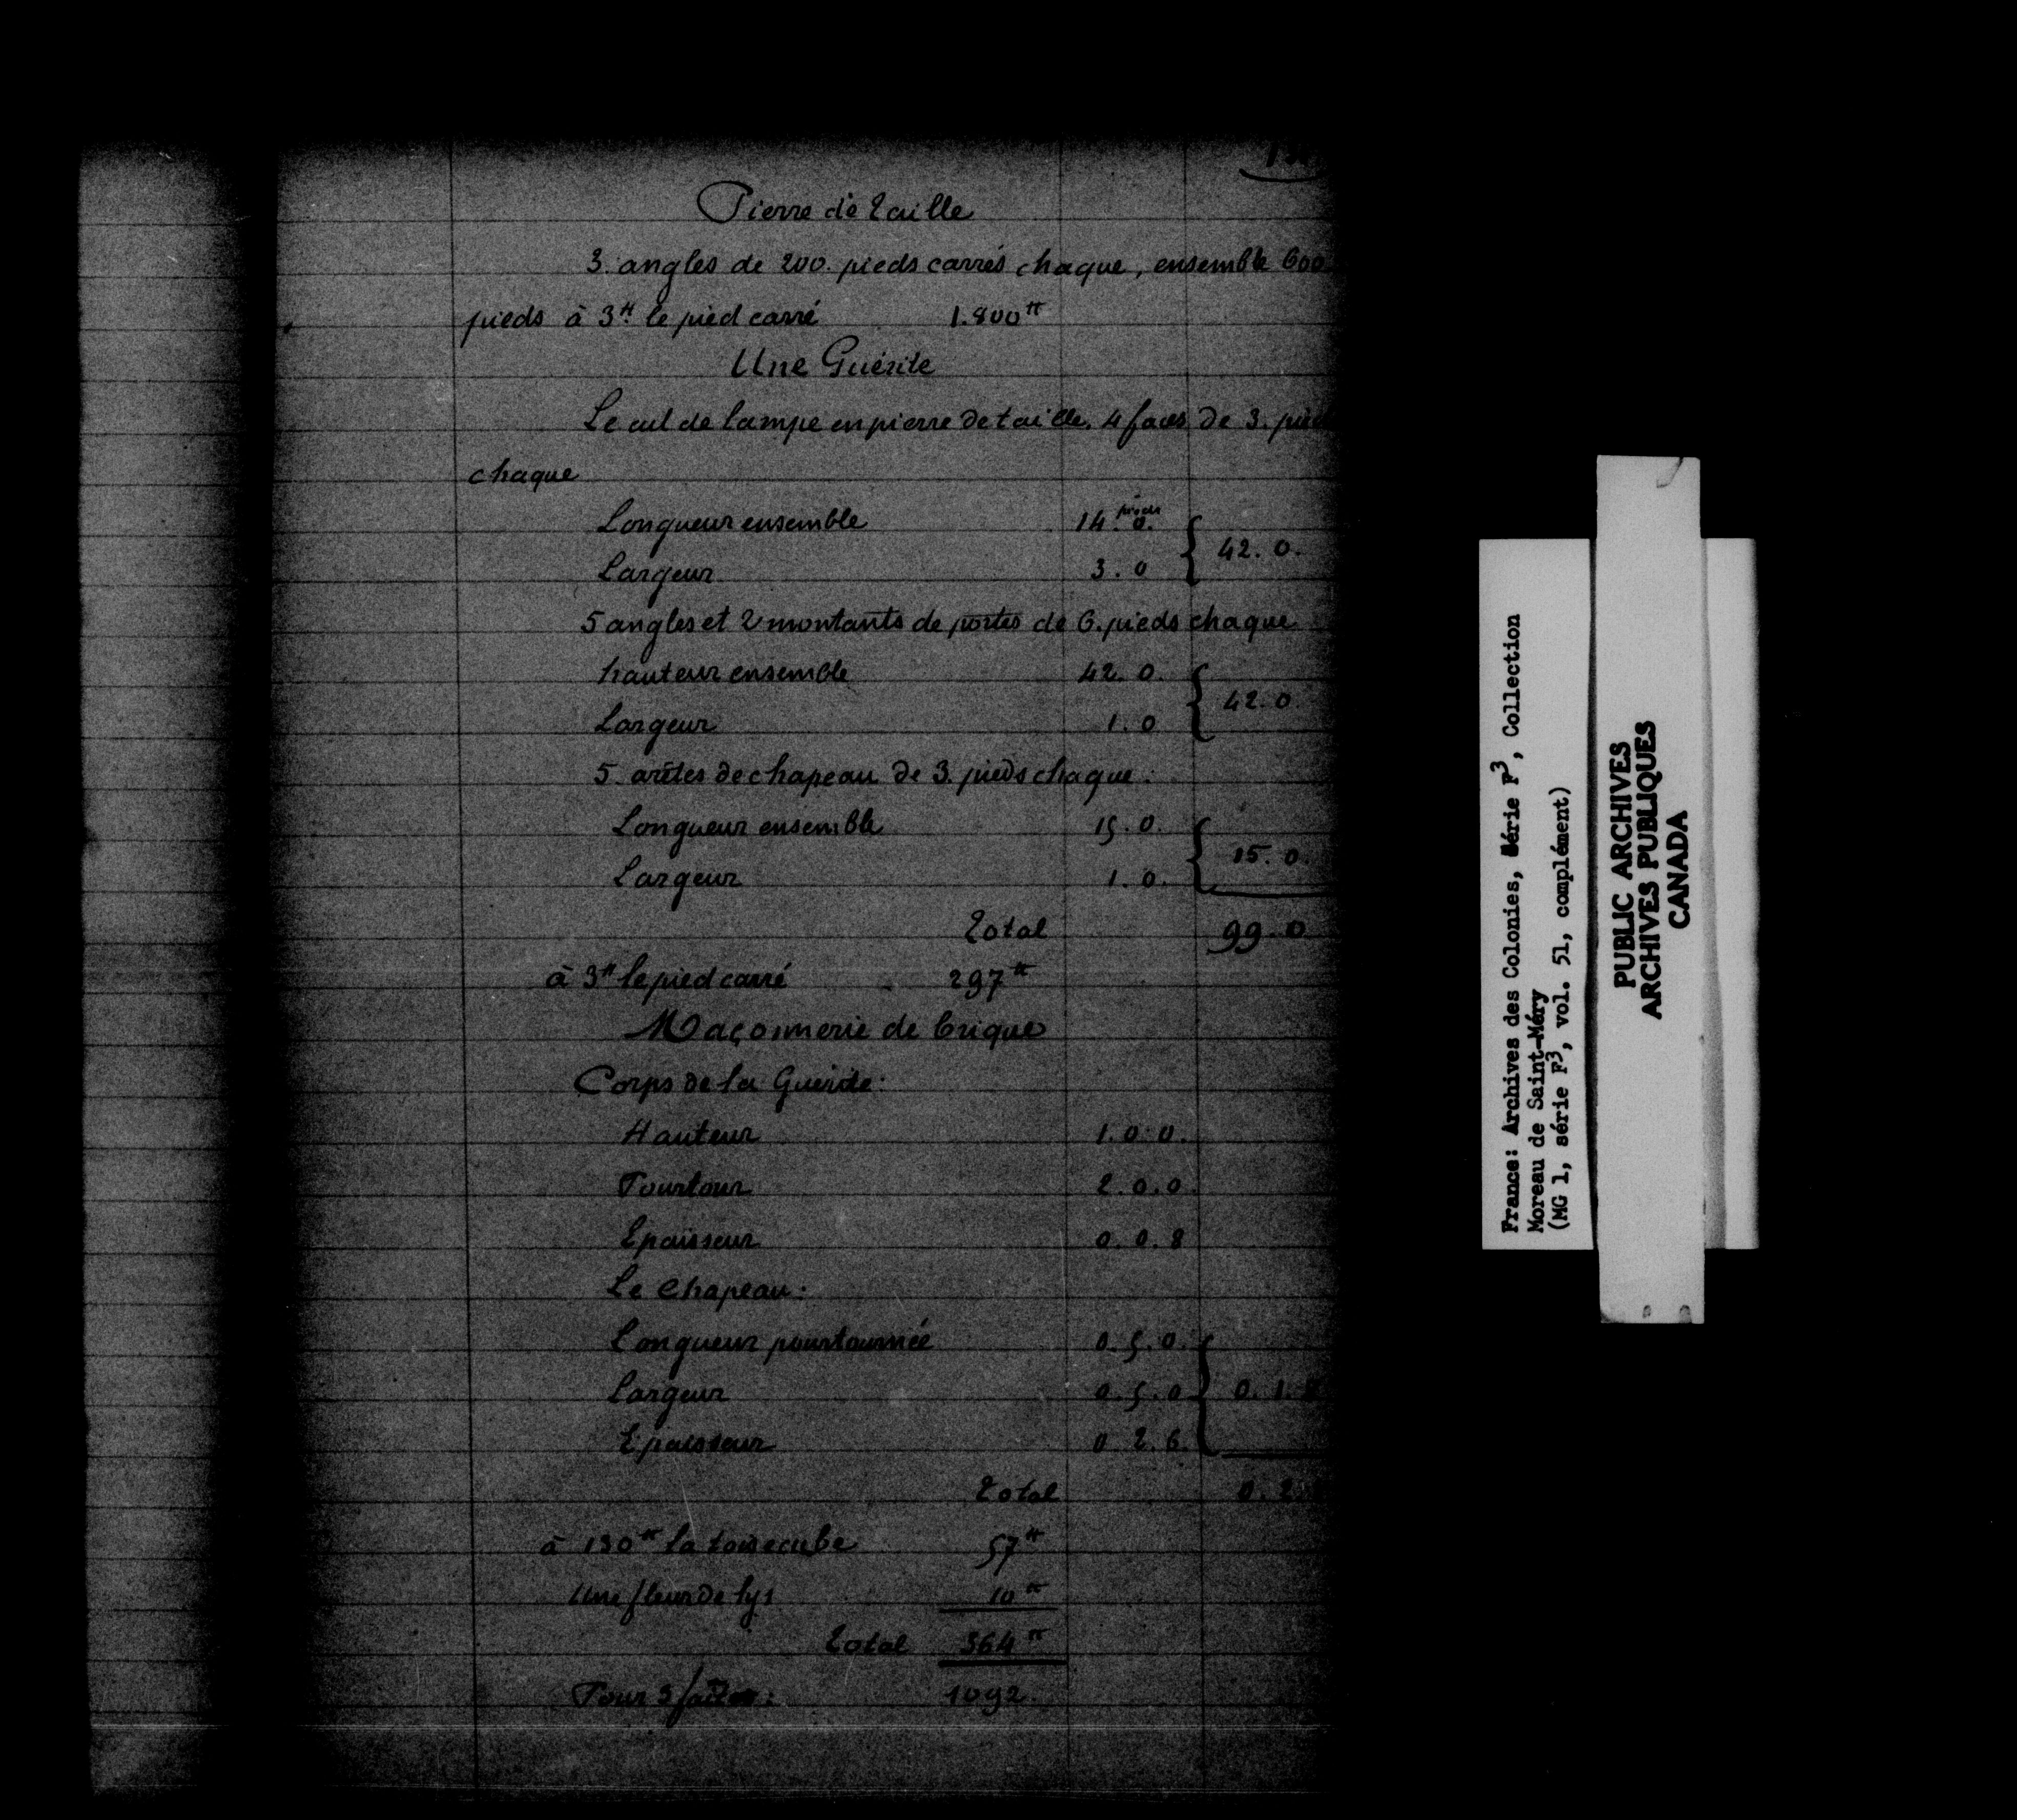 Pierre de taille
3. angles de 200. pieds carrés chaque, ensemble 600
pieds à 3tt le pied carré 1.800tt
Une Guérite
Le cul de lampe en pierre de taille. 4 faces de 3. pieds
chaque
Longueur ensemble 14. pieds 0.
Largeur 3. 0 } 42. 0.
5 angles et 2 montants de portes de 6. pieds chaque
hauteur ensemble 42. 0.
Largeur 1. 0 } 42. 0
5. arêtes de chapeau de 3. pieds chaque.
Longueur ensemble 15. 0.
Largeur 1. 0. } 15. 0.
Total 99. 0
à 3tt le pied carré 297tt
Maçonnerie de brique
Corps de la Guérite:
Hauteur 1. 0 0.
Pourtour 2. 0. 0.
Epaisseur 0. 0. 8
Le Chapeau:
Longueur pourtournée 0. 5. 0.
Largeur 0. 5. 0 } 0. 1.
Epaisseur 0. 2. 6.
Total 0. 2.
à 130tt la toise cube 57tt
Une fleur de lys 10tt
Total 364tt
Pour 3 1092.
France: Archives des Colonies, Série F3, Collection
Moreau de Saint-Méry
(MG 1, série F3, vol. 51, complément)
PUBLIC ARCHIVES
ARCHIVES PUBLIQUES
CANADA